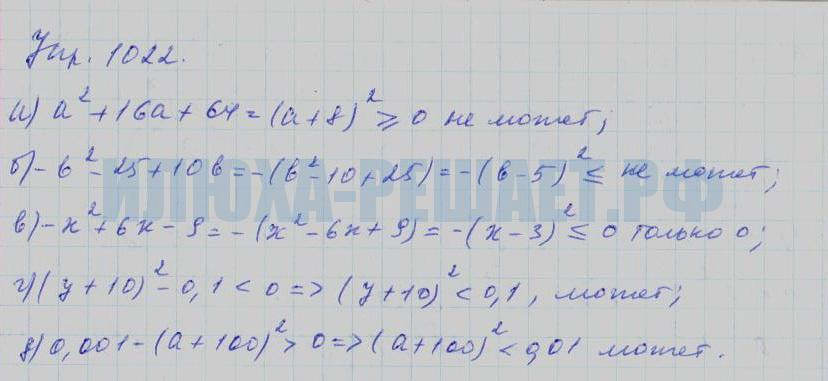 Упр. 1022.
а) a² + 16a + 64 = (a+8)² ⩾ 0 не может;
б) - b² - 25 + 10b = -(b² - 10 + 25) = -(b-5)² ≤ не может;
в) - x² + 6x - 9 = -(x² - 6x + 9) = -(x-3)² ≤ 0 только 0;
г) (y+10)² - 0,1 < 0 => (y+10)² < 0,1, может;
д) 0,001 - (a+100)² > 0 => (a+100)² < 0,01 может.
ИЛЮХА-РЕШАЕТ.РФ